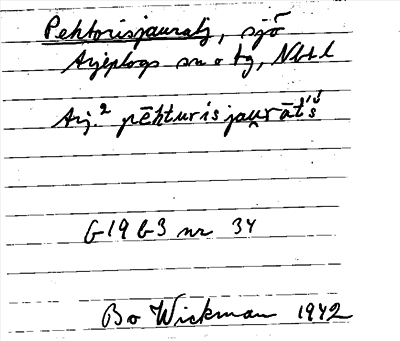 Pehtorisjauratj, sjö
Arjeplogs sn o tg, Nbtl
Arj.² pēhturis jau̯rātˈś
G 19 b 3 nr 34
Bo Wickman 1942